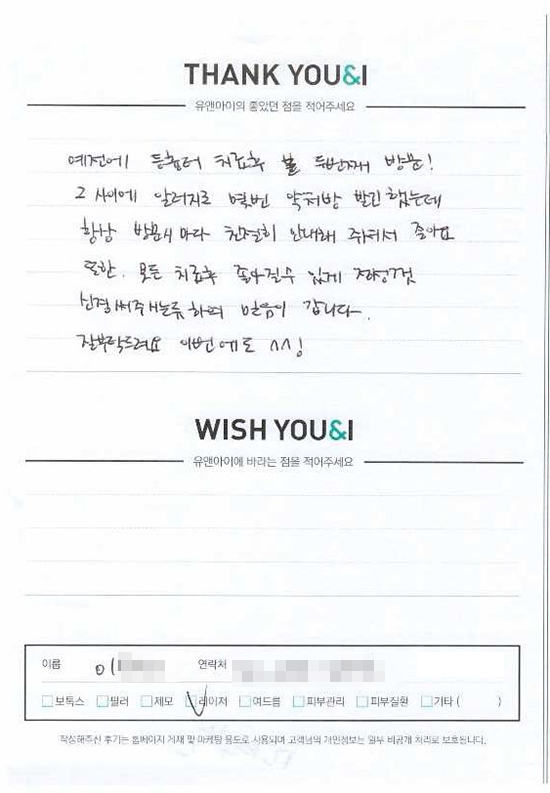 THANK YOU&I
유앤아이의 좋았던 점을 적어주세요
예전에 등흉터 치료후 볼 두번째 방문!
그 사이에 알러지로 몇번 약처방 받긴 했는데
항상 방문시 마다 친절히 안내해 주셔서 좋아요
또한. 모든 치료후 좋아질수 있게 정성껏
신경써주시는듯 하여 믿음이 갑니다.
잘부탁드려요 이번에도 ^^!
WISH YOU&I
유앤아이에 바라는 점을 적어주세요
이름 이 연락처
보톡스 필러 제모 레이저 여드름 피부관리 피부질환 기타 ( )
작성해주신 후기는 홈페이지 게재 및 마케팅 용도로 사용되며 고객님의 개인정보는 일부 비공개 처리로 보호됩니다.